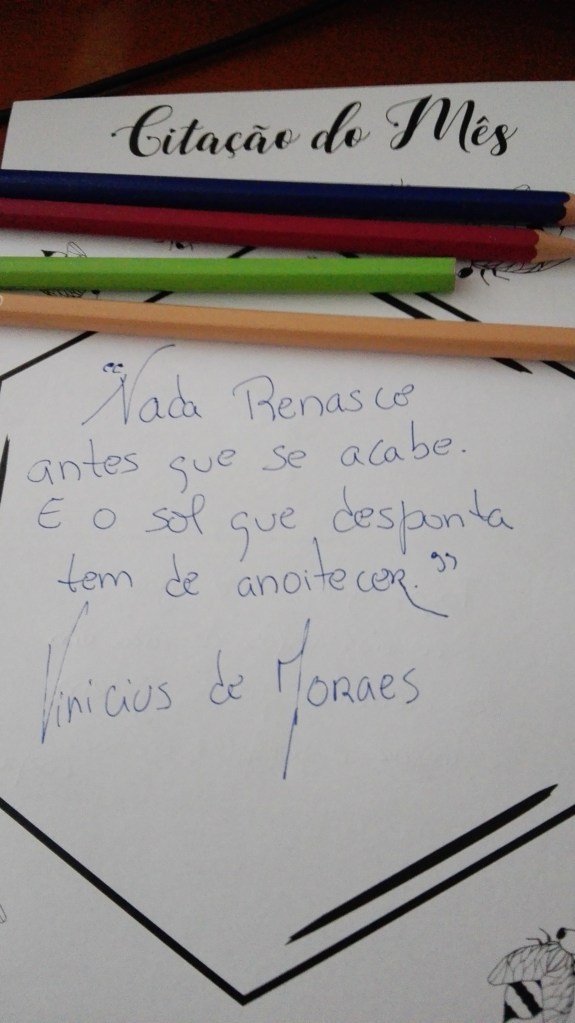 Citação do Mês
"Nada Renasce
antes que se acabe.
E o sol que desponta
tem de anoitecer."
Vinicius de Moraes